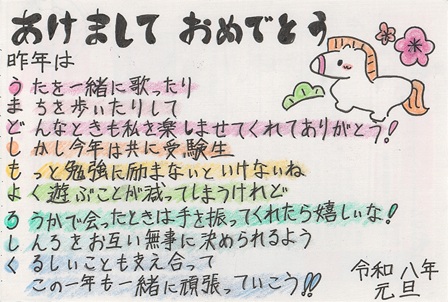 あけまして おめでとう
昨年は
うたを一緒に歌ったり
まちを歩いたりして
どんなときも私を楽しませてくれてありがとう!
しかし今年は共に受験生
もっと勉強に励まないといけないね
よく遊ぶことが減ってしまうけれど
ろうかで会ったときは手を振ってくれたら嬉しいな!
しんろをお互い無事に決められるよう
くるしいことも支え合って
この一年も一緒に頑張っていこう!!
令和八年
元旦